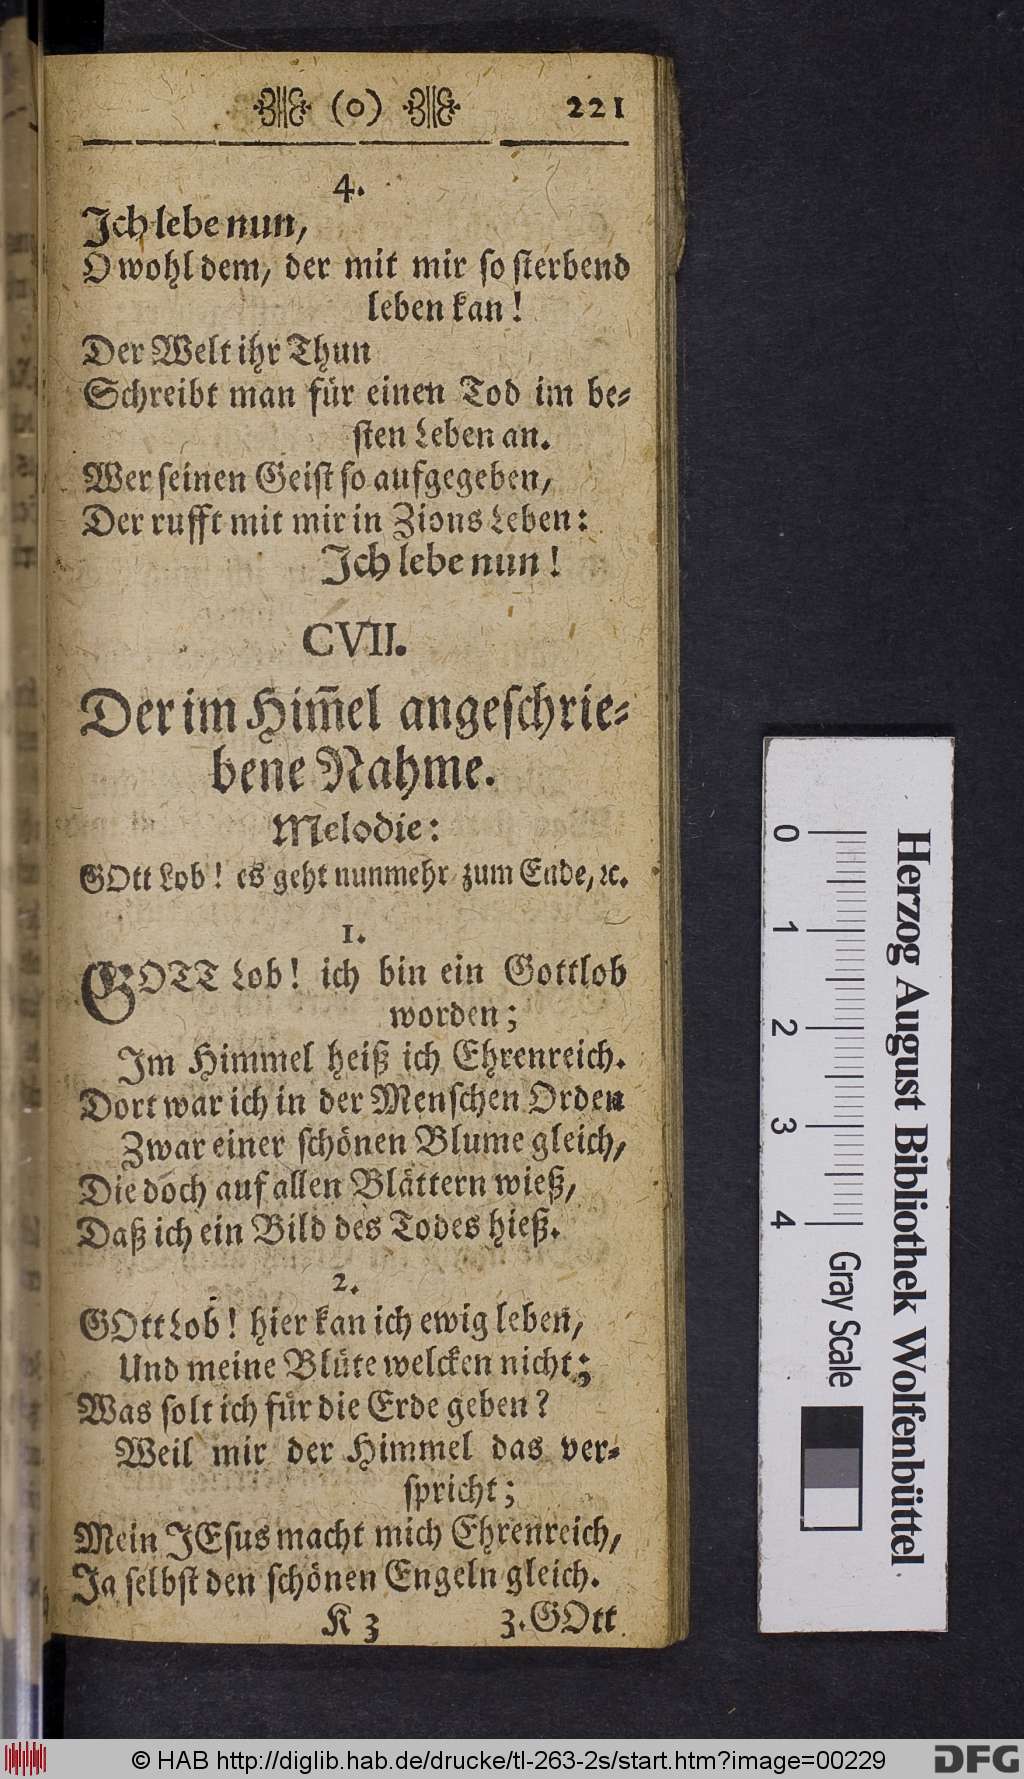 (o) 221
4.
Ich lebe nun,
O wohl dem, der mit mir so sterbend
leben kan!
Der Welt ihr Thun
Schreibt man für einen Tod im be-
sten Leben an.
Wer seinen Geist so aufgegeben,
Der rufft mit mir in Zions Leben:
Ich lebe nun!
CVII.
Der im Him̃el angeschrie-
bene Nahme.
Melodie:
GOtt Lob! es geht nunmehr zum Ende, ꝛc.
1.
GOTT Lob! ich bin ein Gottlob
worden;
Im Himmel heiß ich Ehrenreich.
Dort war ich in der Menschen Orden
Zwar einer schönen Blume gleich,
Die doch auf allen Blättern wieß,
Daß ich ein Bild des Todes hieß.
2.
GOtt Lob! hier kan ich ewig leben,
Und meine Blüte welcken nicht;
Was solt ich für die Erde geben?
Weil mir der Himmel das ver-
spricht;
Mein JEsus macht mich Ehrenreich,
Ja selbst den schönen Engeln gleich.
K 3 3. GOtt
0 1 2 3 4
Gray Scale
Herzog August Bibliothek Wolfenbüttel
© HAB http://diglib.hab.de/drucke/tl-263-2s/start.htm?image=00229
DFG